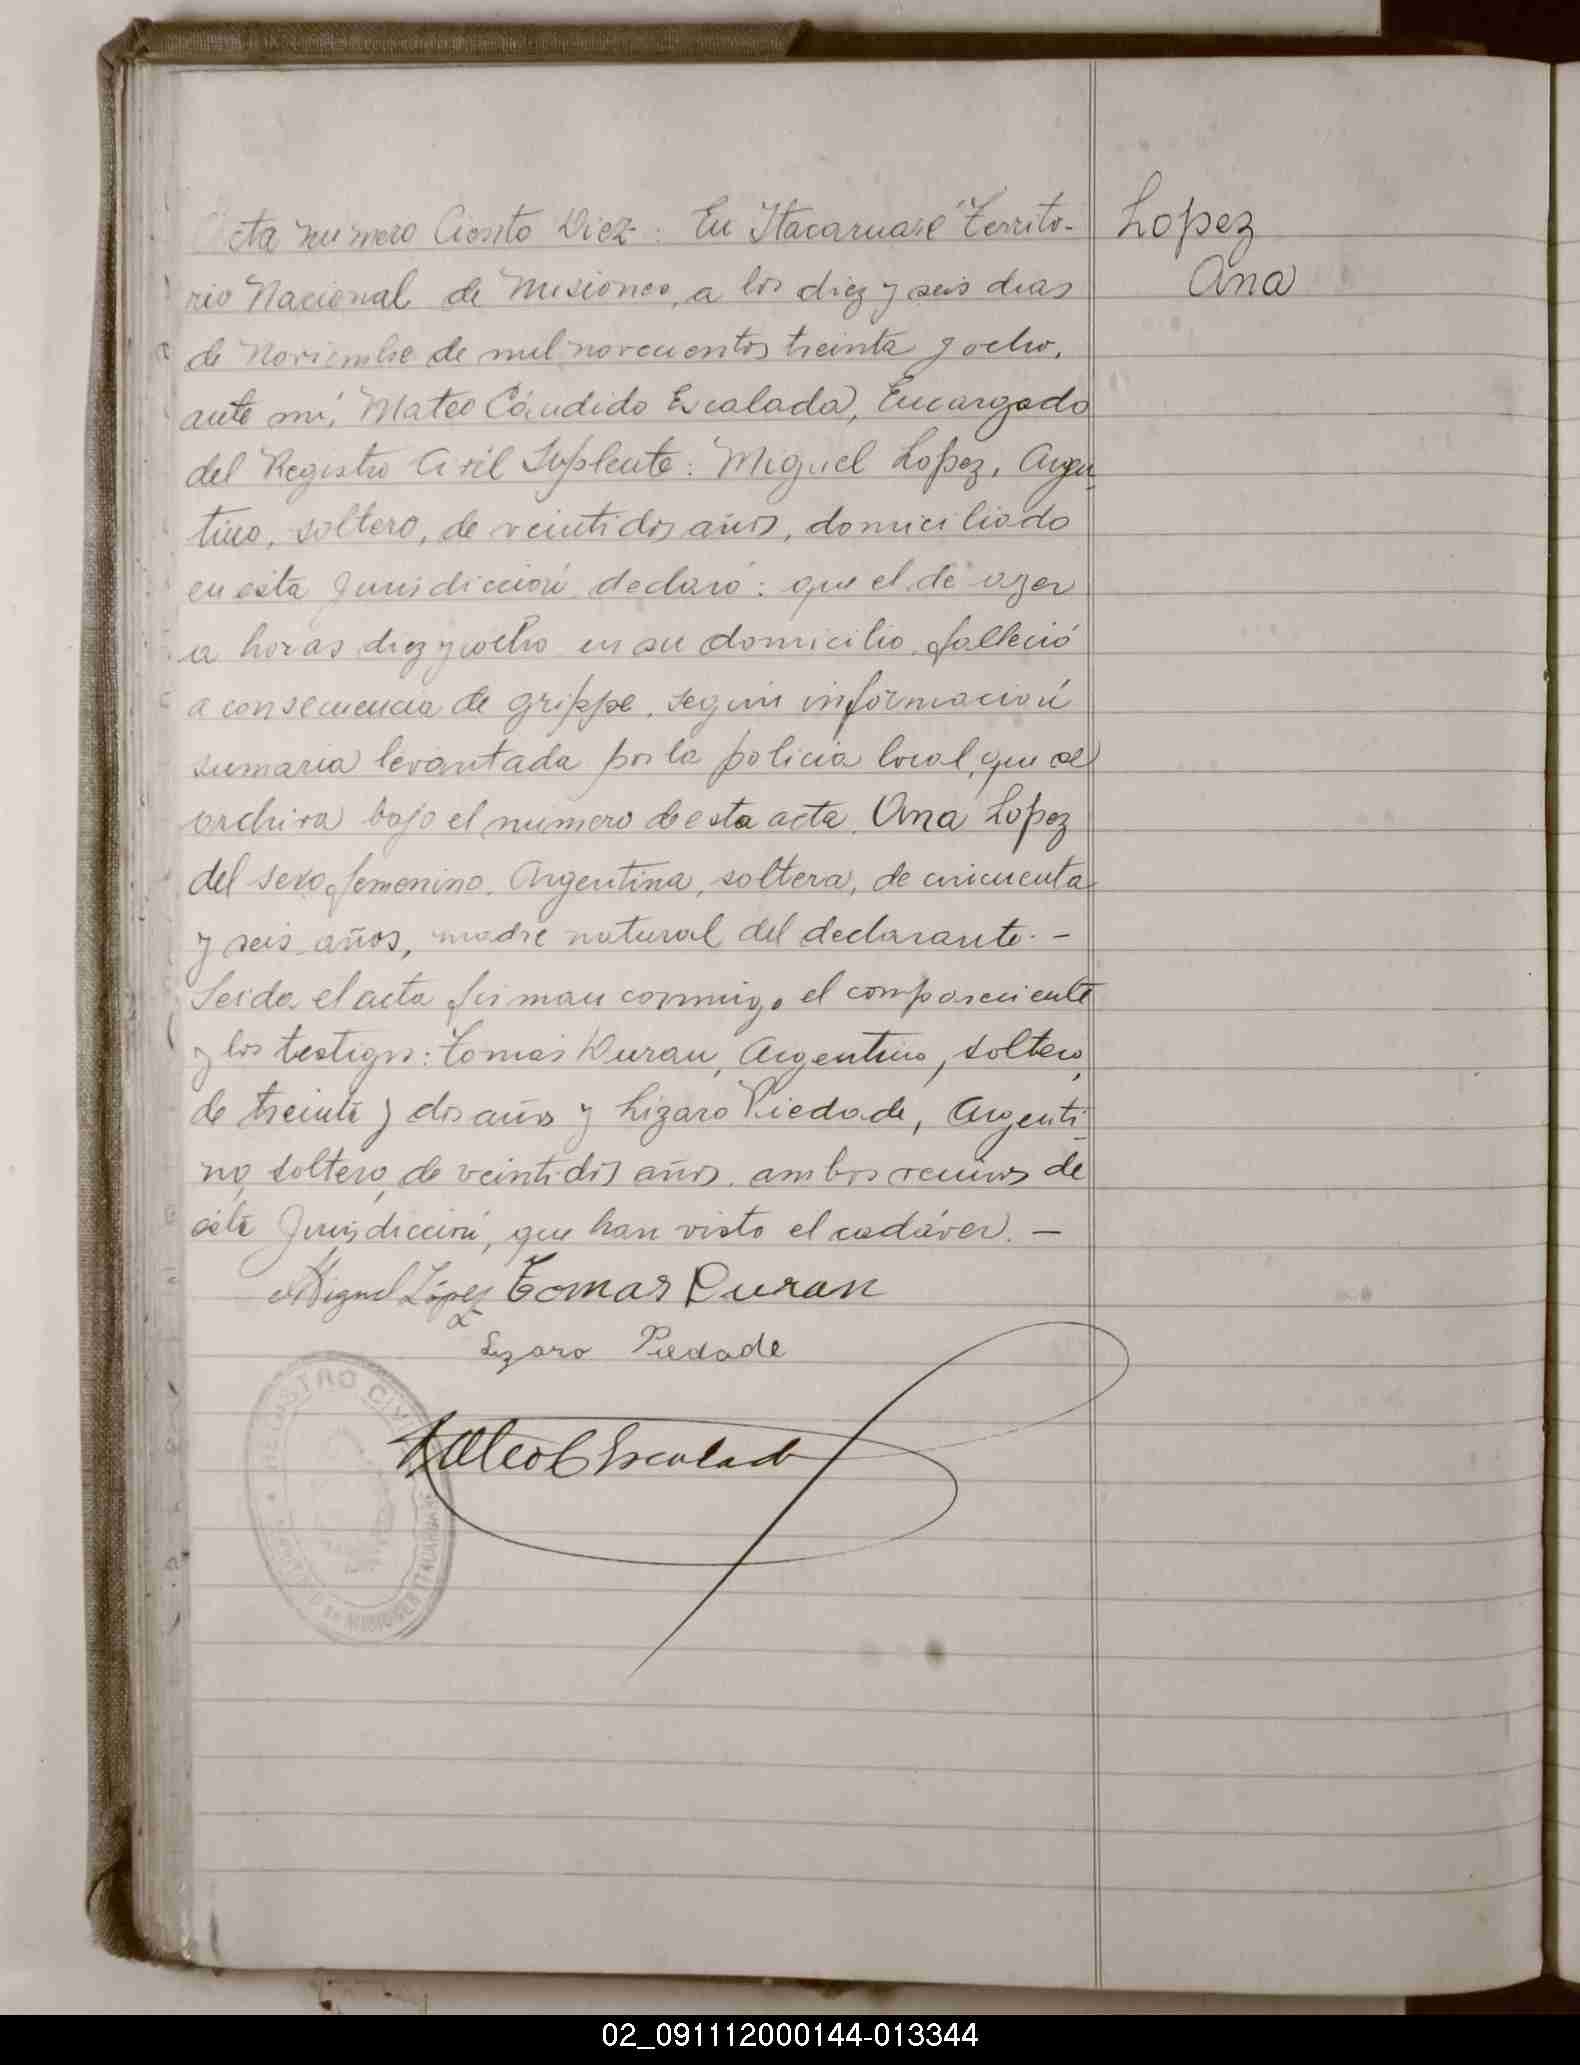 Acta numero Ciento Diez: En Itacaruaré Territo-
rio Nacional de Misiones, a los diez y seis dias
de Noviembre de mil novecientos treinta y ocho,
ante mí, Mateo Cándido Escalada, Encargado
del Registro Civil Suplente: Miguel Lopez, Argen-
tino, soltero, de veintidos años, domiciliado
en esta Jurisdicción declaró: que el de ayer
a horas diez y ocho en su domicilio falleció
a consecuencia de grippe, según información
sumaria levantada por la policia local, que se
archiva bajo el numero de esta acta, Ana Lopez
del sexo femenino, Argentina, soltera, de cincuenta
y seis años, madre natural del declarante.-
Leida el acta firman conmigo el compareciente
y los testigos: Tomás Duran, Argentino, soltero,
de treinta y dos años y Lizaro Piedade, Argenti-
no, soltero, de veintidos años, ambos vecinos de
esta Jurisdicción, que han visto el cadáver. -
Miguel López Tomas Duran
Lizaro Piedade
Mateo C Escalada
REGISTRO CIVIL
MISIONES ITACARUARE
Lopez
Ana
02_091112000144-013344